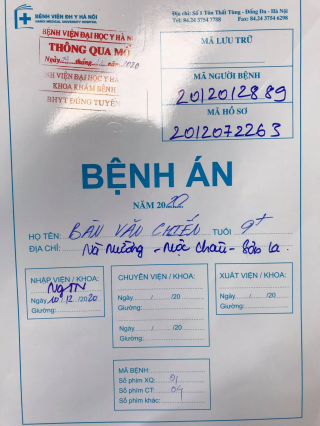 BỆNH VIỆN ĐH Y HÀ NỘI
HANOI MEDICAL UNIVERSITY HOSPITAL
Địa chỉ: Số 1 Tôn Thất Tùng - Đống Đa - Hà Nội
Tel: 84.24 3754 7788 Fax: 84.24 3754 6298
BỆNH VIỆN ĐẠI HỌC Y HÀ NỘI
THÔNG QUA MỔ
Ngày tháng năm 2020
BỆNH VIỆN ĐẠI HỌC Y HÀ NỘI
KHOA KHÁM BỆNH
BHYT ĐÚNG TUYẾN
MÃ LƯU TRỮ
MÃ NGƯỜI BỆNH
2012012889
MÃ HỒ SƠ
2012072263
BỆNH ÁN
NĂM 2020
HỌ TÊN: BÀN VĂN CHIẾN TUỔI 9t
ĐỊA CHỈ: Nà Mường - Mộc Châu - Sơn La.
NHẬP VIỆN / KHOA:
Ngày 10/12/2020
Giường:
CHUYỂN VIỆN / KHOA:
Ngày / /20
Giường:
Ngày / /20
Giường:
XUẤT VIỆN / KHOA:
Ngày / /20
Giường:
MÃ BỆNH:
Số phim XQ: 01
Số phim CT: 04
Số phim khác: